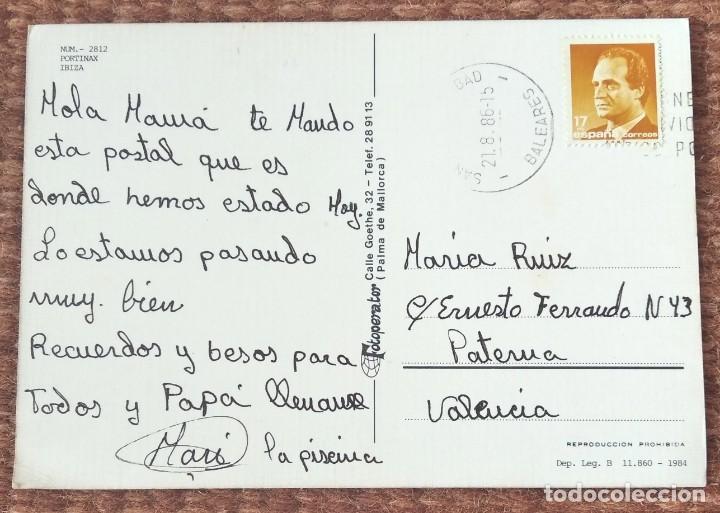 NUM.- 2812
PORTINAX
IBIZA
Hola Mamá te Mando
esta postal que es
donde hemos estado Hoy.
Lo estamos pasando
muy. bien
Recuerdos y besos para
Todos y Papá llename
Mari la piscina
Fotoperator Calle Goethe, 32 - Telef. 28 91 13
(Palma de Mallorca)
SAN
BAD
21.8.86-15
BALEARES
17
españa correos
María Ruiz
c/ Ernesto Ferrando N 43
Paterna
Valencia
REPRODUCCION PROHIBIDA
Dep. Leg. B 11.860 - 1984
todocoleccion.net